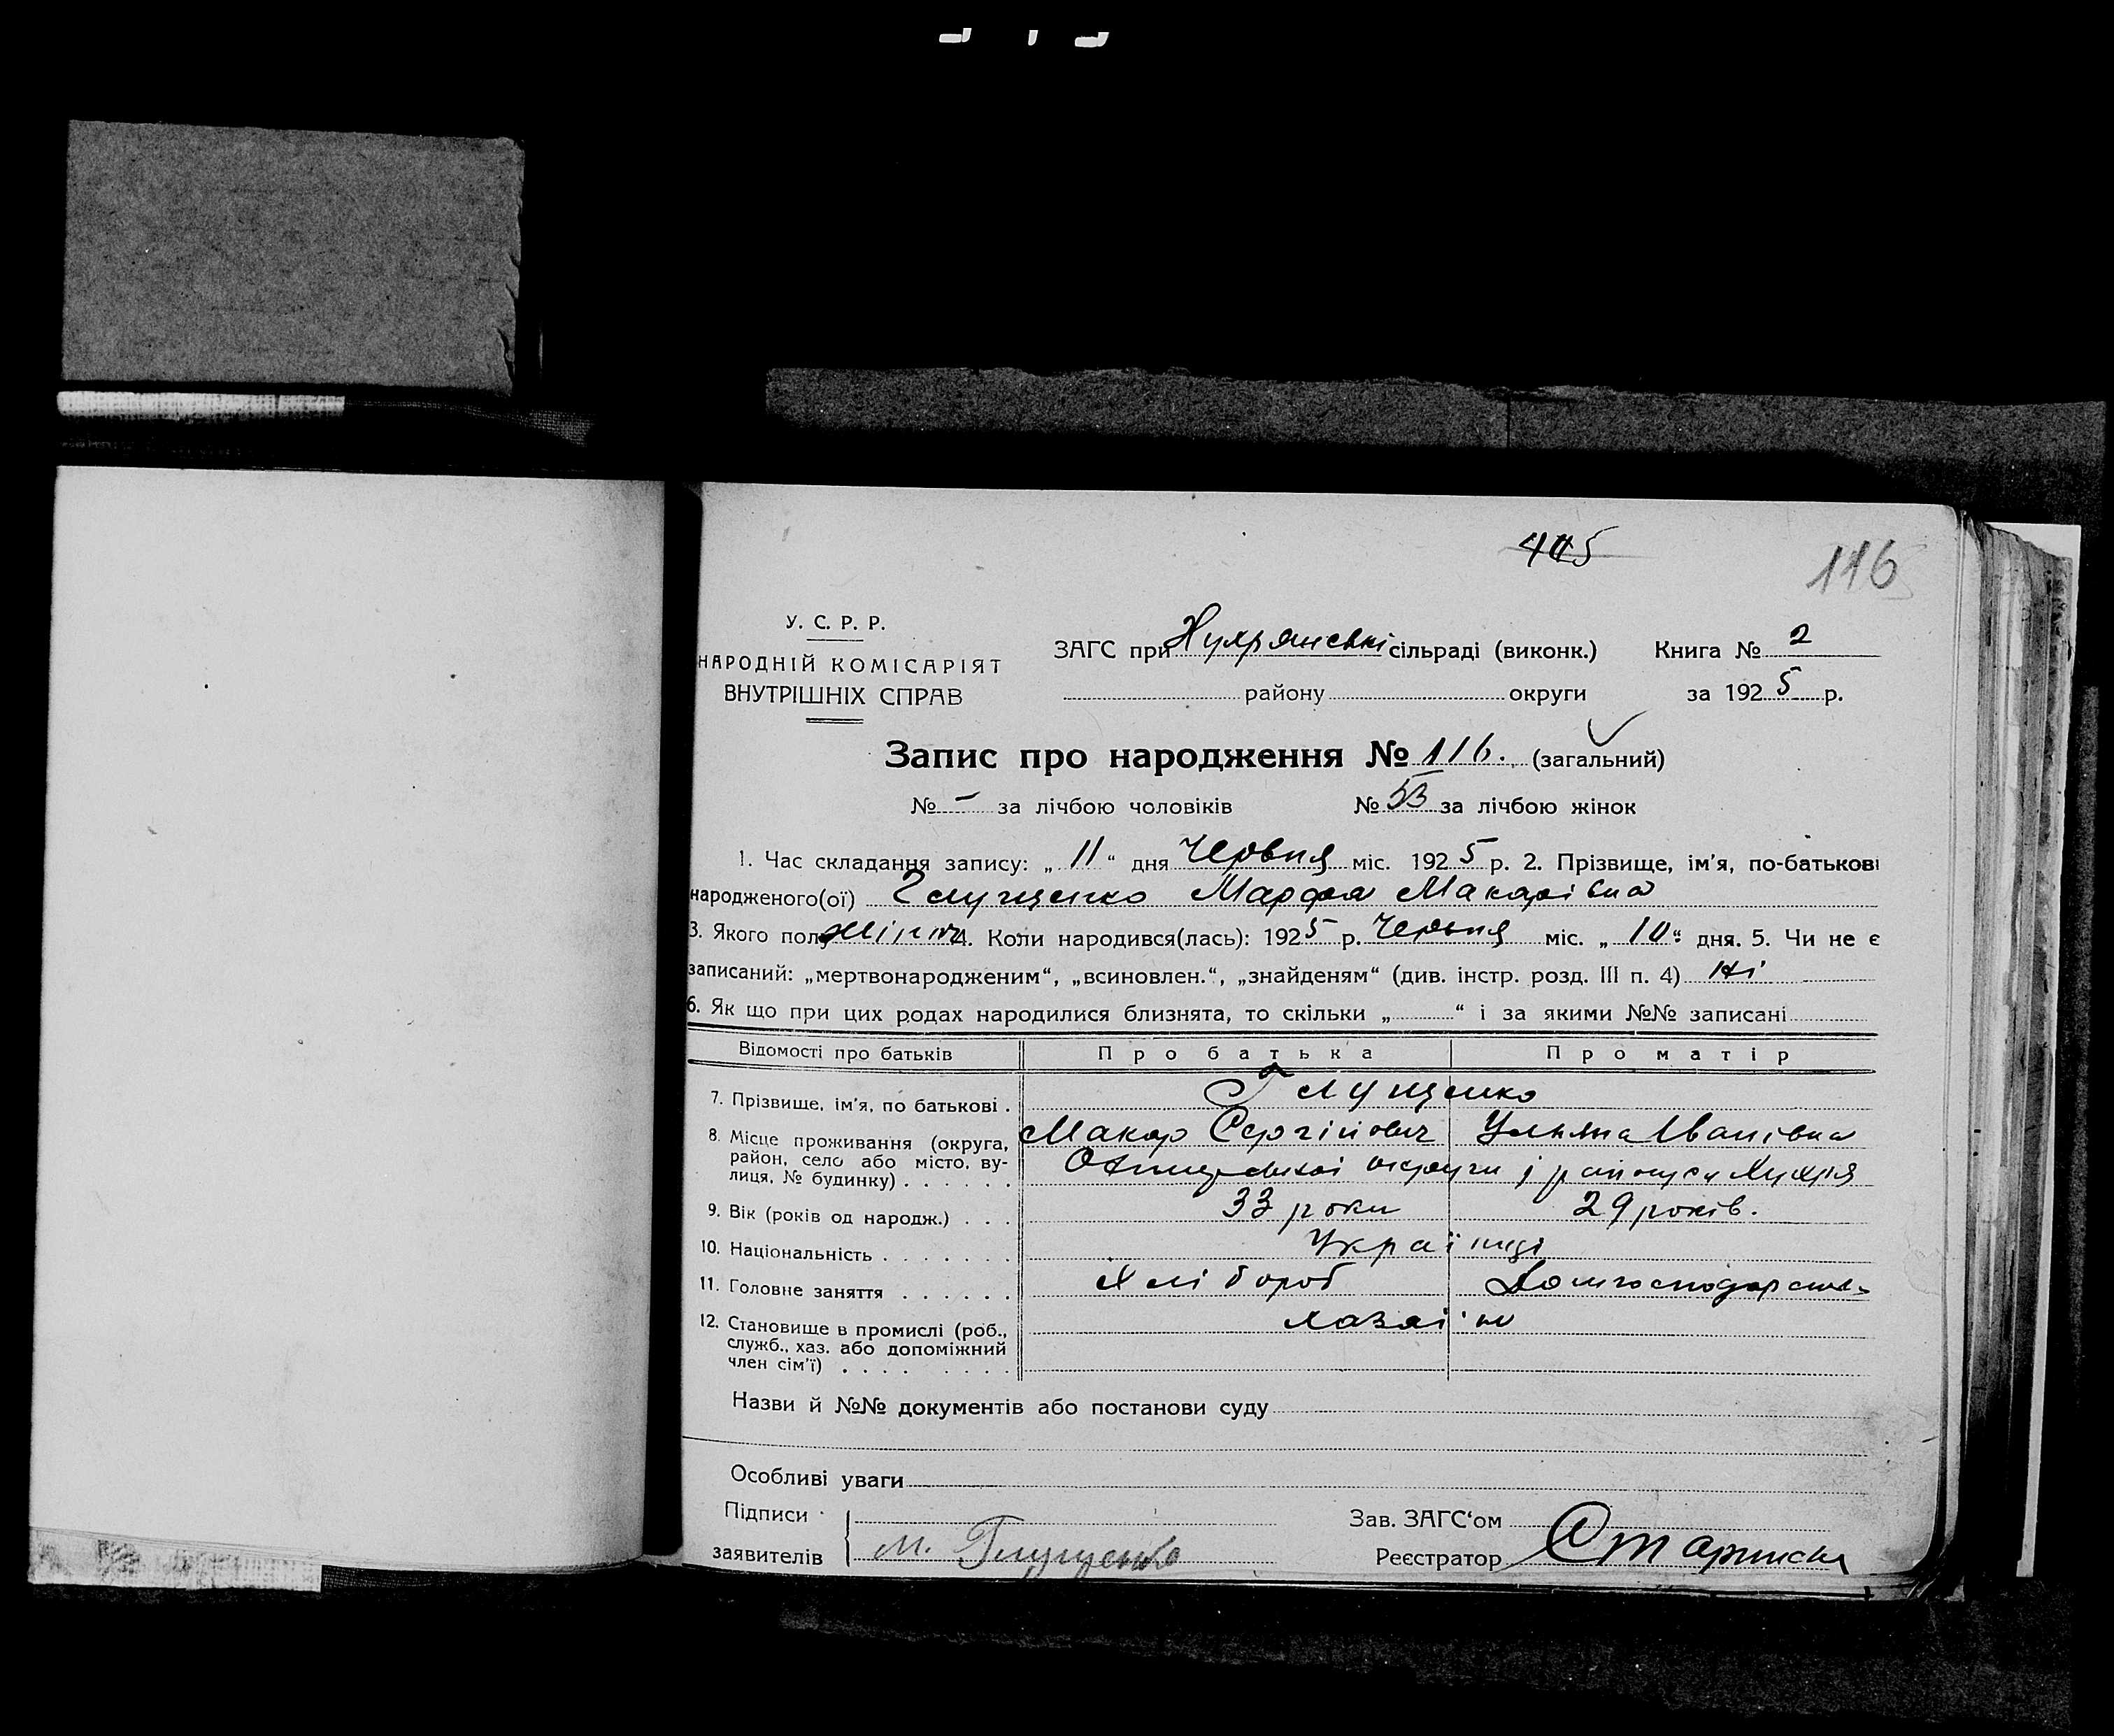 445
116
У. С. Р. Р.
НАРОДНІЙ КОМІСАРІЯТ
ВНУТРІШНІХ СПРАВ
ЗАГС при сільраді (виконк.) Книга № 2
району округи за 1925 р.
Запис про народження № 116. (загальний)
№ – за лічбою чоловіків № 53 за лічбою жінок
1. Час складання запису: „11“ дня Червня міс. 1925 р. 2. Прізвище, ім'я, по-батькові
народженого(ої) Глущенко Марфа Макарівна
3. Якого полу 4. Коли народився(лась): 1925 р. Червня міс. „10“ дня. 5. Чи не є
записаний: „мертвонародженим“, „всиновлен.“, „знайденям“ (див. інстр. розд. III п. 4) Ні
6. Як що при цих родах народилися близнята, то скільки „ “ і за якими №№ записані
Відомості про батьків Про батька Про матір
7. Прізвище, ім'я, по батькові . Глущенко
Макар Сергійович Уляна Іванівна
8. Місце проживання (округа,
район, село або місто, вулиця, № будинку) . . . . . . округи і району
9. Вік (років од народж.) . . . 33 роки 29 років.
10. Національність . . . . . . . Українці
11. Головне заняття . . . . . . Хлібороб
12. Становище в промислі (роб.,
служб., хаз. або допоміжний
член сім'ї) . . . . . . . .
Назви й №№ документів або постанови суду
Особливі уваги
Підписи
заявителів М. Глущенко
Зав. ЗАГС'ом
Реєстратор